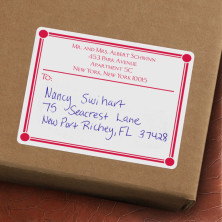 Mr. and Mrs. Albert Schwinn
453 Park Avenue
Apartment 5C
New York, New York 10015
TO:
Nancy Swihart
75 Seacrest Lane
New Port Richey, FL 37428